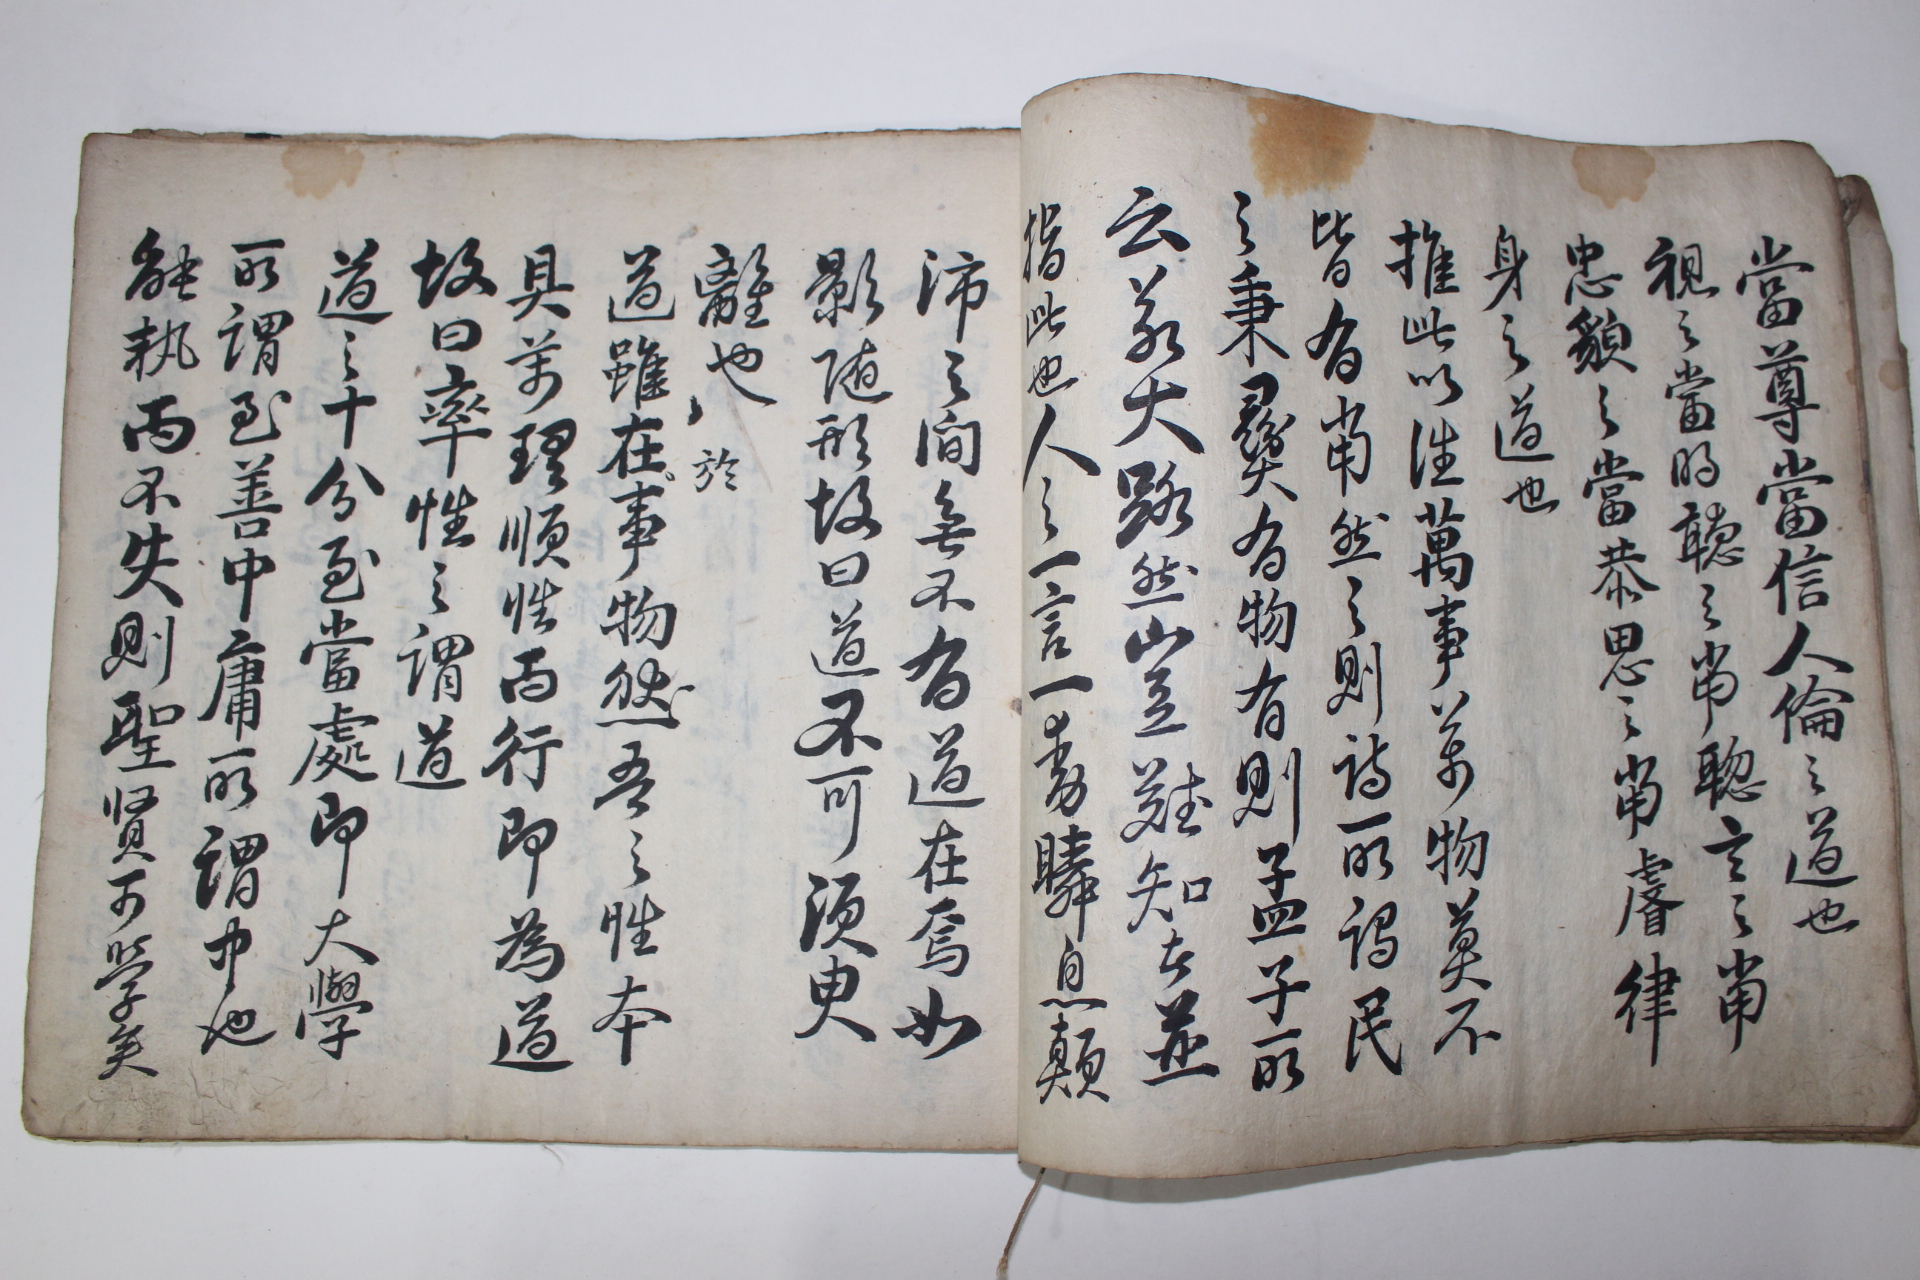 當尊當信人倫之道也
視之當明聽之當聰言之當
忠貌之當恭思之當睿律
身之道也
推此以往萬事万物莫不
皆有當然之則詩所謂民
之秉彛有物有則孟子所
云若大路然豈難知者並
指此也人之一言一動瞬息顛
沛之間無不有道在焉如
影随形故曰道不可須臾
離也
於
道雖在事物然吾之性本
具万理順性而行即為道
故曰率性之謂道
道之十分至當處即大學
所謂至善中庸所謂中也
能執而不失則聖贤可学矣